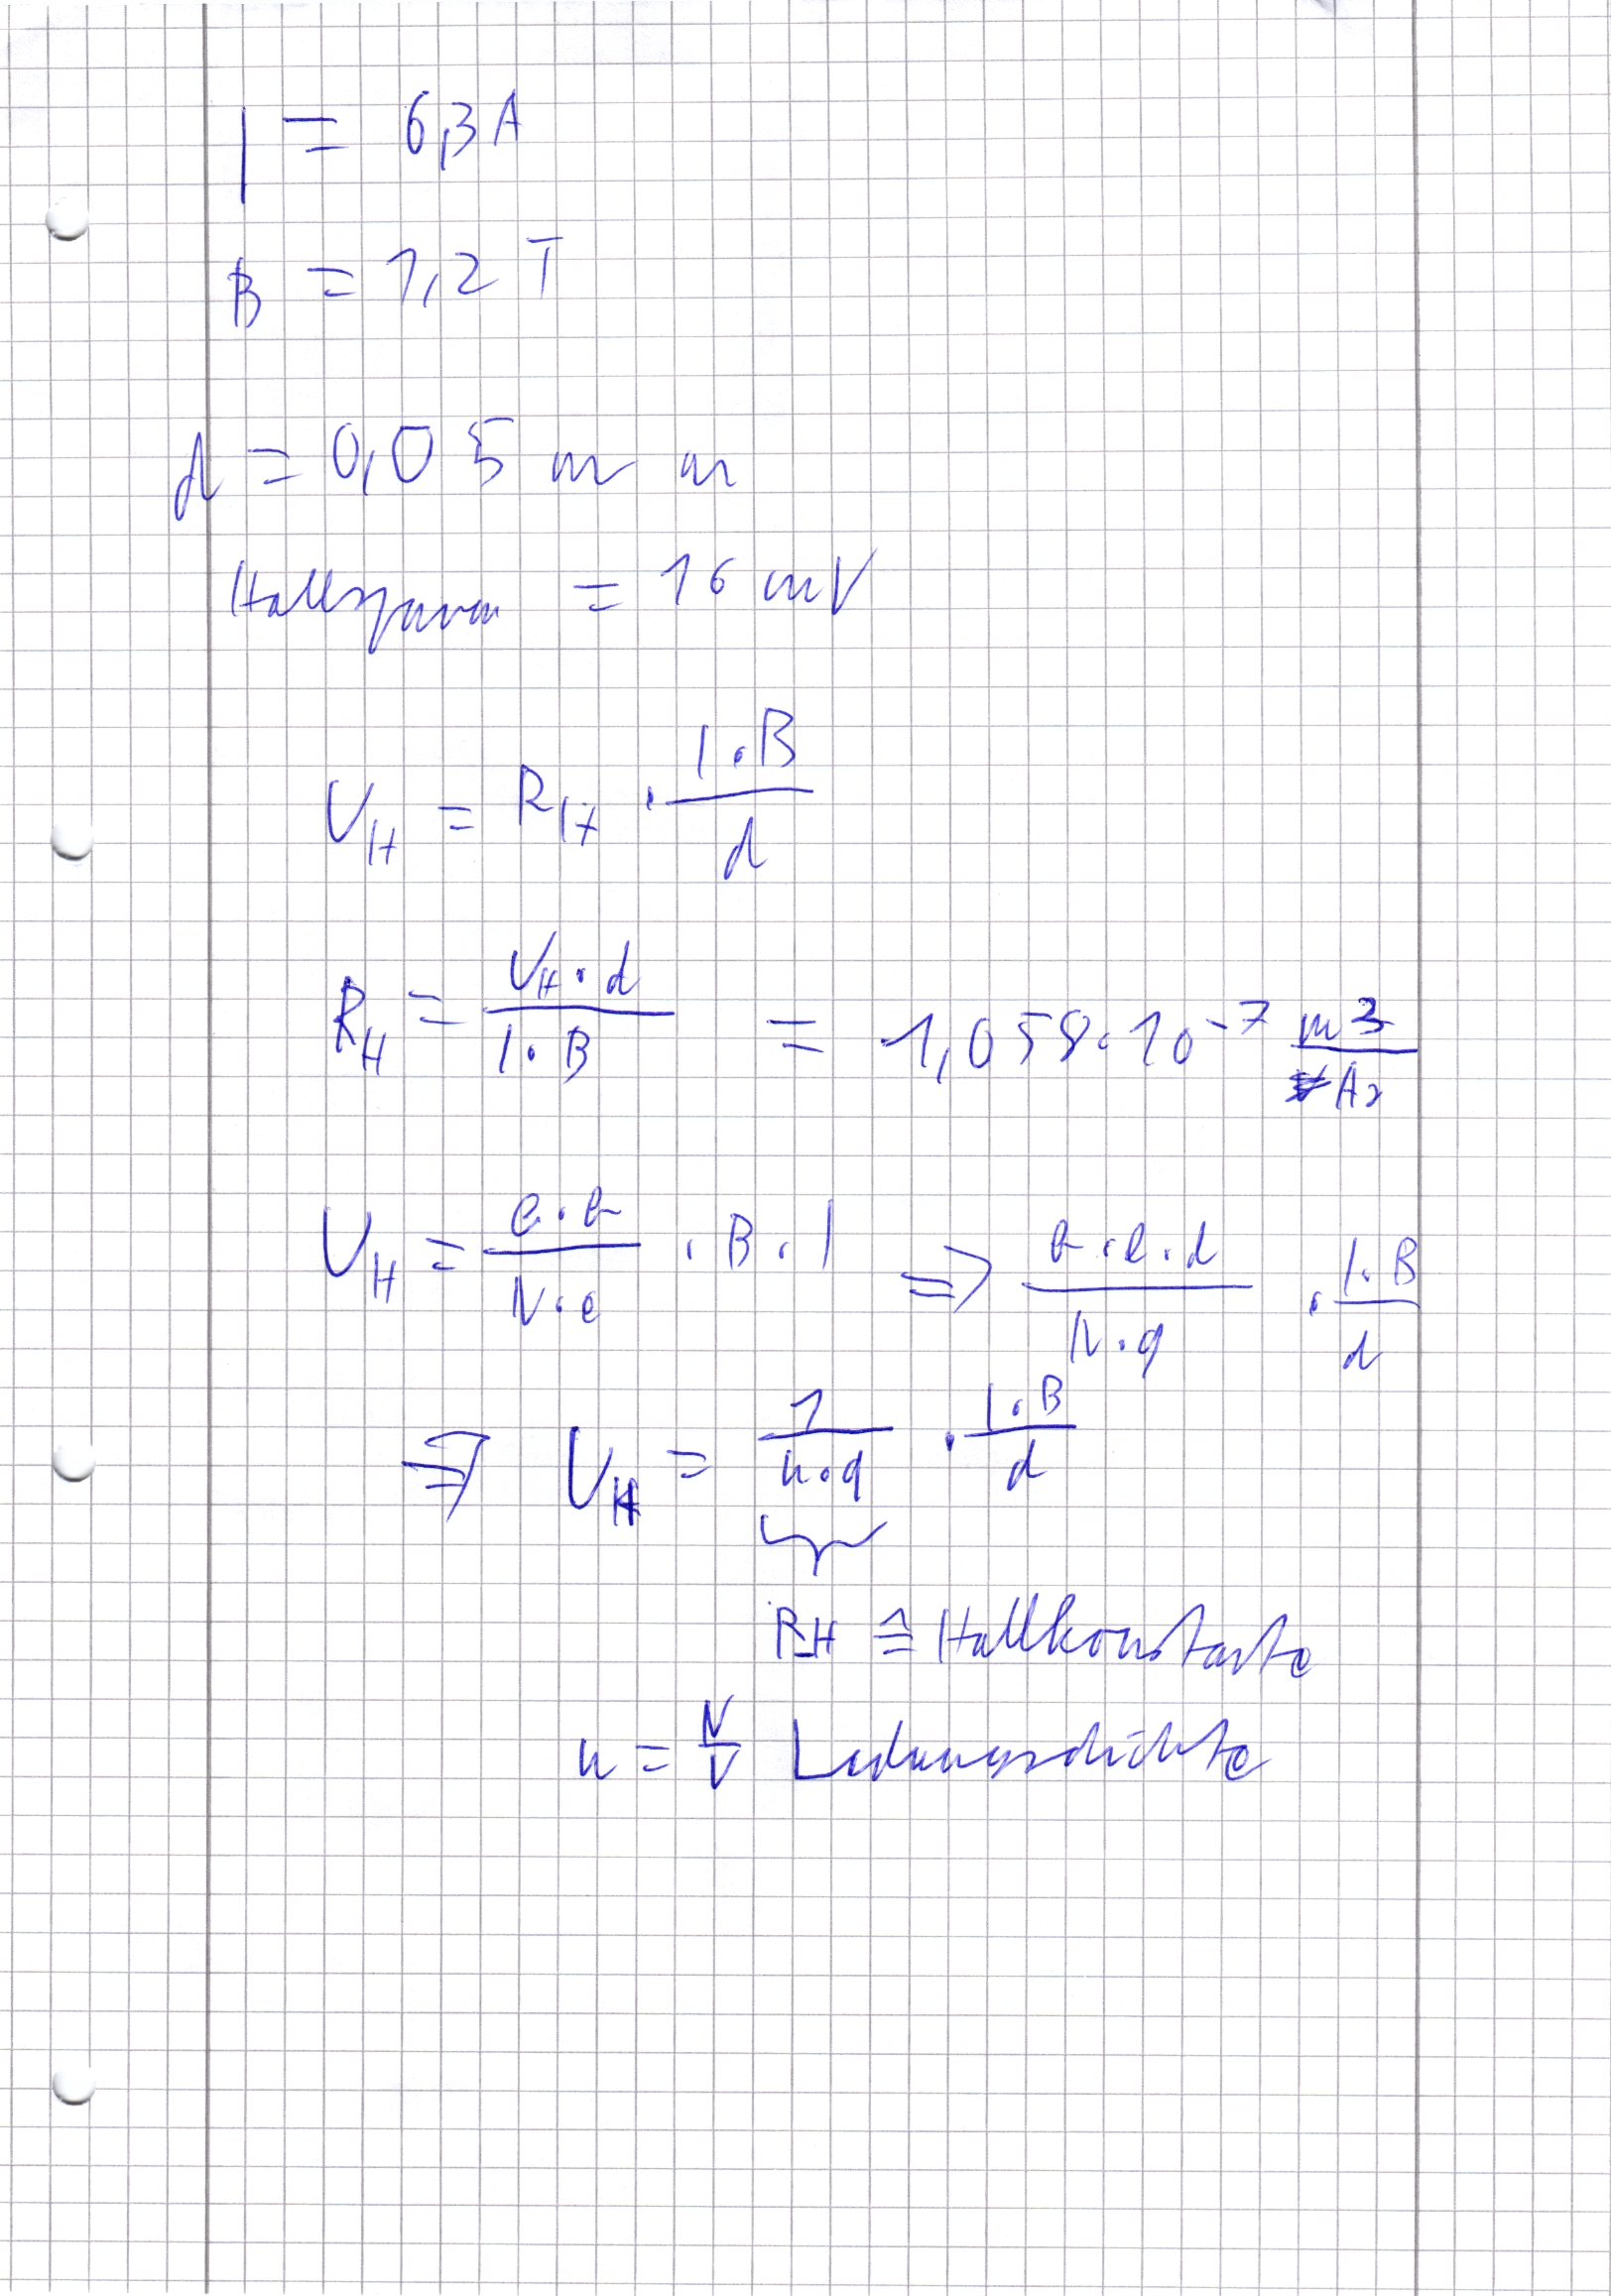 I = 6,3 A
B = 1,2 T
d = 0,05 m m
= 16 mV
U_H = R_H · (I · B)/d
R_H = (U_H · d)/(I · B) = 1,058 · 10^-7 m^3/As
U_H = (e · b)/(N · e) · B · I => (b · l · d)/(N · q) · (I · B)/d
=> U_H = 1/(n · q) · (I · B)/d
R_H ≙ Hallkonstante
n = N/V Ladungsdichte